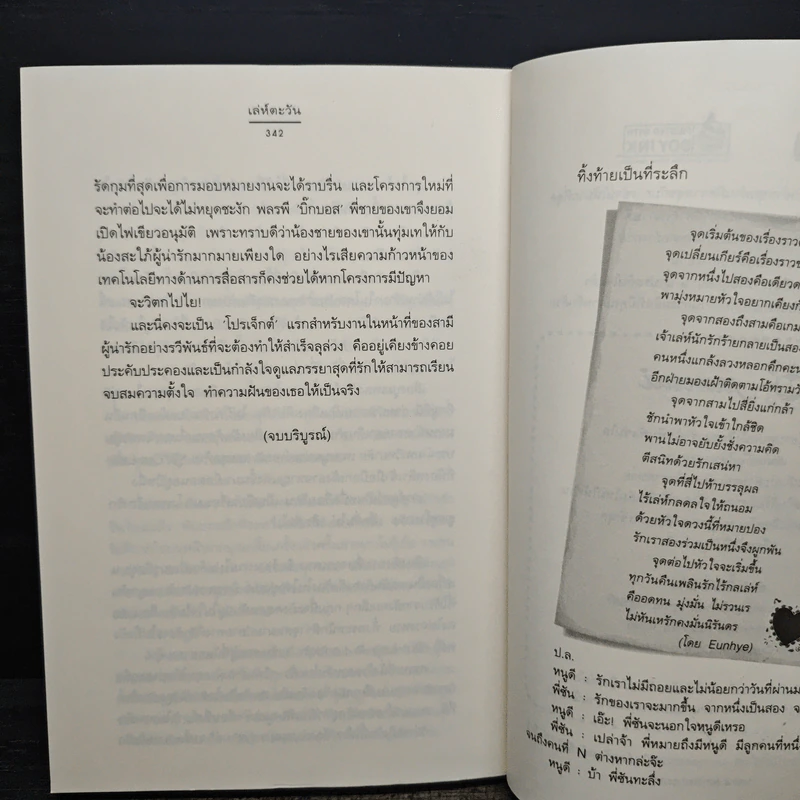 เล่ห์ตะวัน
342
รัดกุมที่สุดเพื่อการมอบหมายงานจะได้ราบรื่น และโครงการใหม่ที่
จะทำต่อไปจะได้ไม่หยุดชะงัก พลรพี 'บิ๊กบอส' พี่ชายของเขาจึงยอม
เปิดไฟเขียวอนุมัติ เพราะทราบดีว่าน้องชายของเขานั้นทุ่มเทให้กับ
น้องสะใภ้ผู้น่ารักมากมายเพียงใด อย่างไรเสียความก้าวหน้าของ
เทคโนโลยีทางด้านการสื่อสารก็คงช่วยได้หากโครงการมีปัญหา
จะวิตกไปไย!
และนี่คงจะเป็น 'โปรเจ็กต์' แรกสำหรับงานในหน้าที่ของสามี
ผู้น่ารักอย่างรวีพันธ์ที่จะต้องทำให้สำเร็จลุล่วง คืออยู่เคียงข้างคอย
ประคับประคองและเป็นกำลังใจดูแลภรรยาสุดที่รักให้สามารถเรียน
จบสมความตั้งใจ ทำความฝันของเธอให้เป็นจริง
(จบบริบูรณ์)
ทิ้งท้ายเป็นที่ระลึก
จุดเริ่มต้นของเรื่องราว
จุดเปลี่ยนเกียร์คือเรื่องราว
จุดจากหนึ่งไปสองคือเดียวด
พามุ่งหมายหัวใจอยากเคียง
จุดจากสองถึงสามคือเกม
เจ้าเล่ห์นักรักร้ายกลายเป็นสอง
คนหนึ่งแกล้งลวงหลอกคึกคะน
อีกฝ่ายมองเฝ้าติดตามโอ้ทราม
จุดจากสามไปสี่ยิ่งแก่กล้า
ชักนำพาหัวใจเข้าใกล้ชิด
พานไม่อาจยับยั้งชั่งความคิด
ตีสนิทด้วยรักเสน่หา
จุดที่สี่ไปห้าบรรลุผล
ไร้เล่ห์กลดลใจให้ถนอม
ด้วยหัวใจดวงนี้ที่หมายปอง
รักเราสองร่วมเป็นหนึ่งจึงผูกพัน
จุดต่อไปหัวใจจะเริ่มขึ้น
ทุกวันคืนเพลินรักไร้กลเล่ห์
คืออดทน มุ่งมั่น ไม่รวนเร
ไม่หันเหรักคงมั่นนิรันดร
(โดย Eunhye)
ป.ล.
หนูดี : รักเราไม่มีถอยและไม่น้อยกว่าวันที่ผ่านม
พี่ซัน : รักของเราจะมากขึ้น จากหนึ่งเป็นสอง จ
หนูดี : เอ๊ะ! พี่ซันจะนอกใจหนูดีเหรอ
พี่ซัน : เปล่าจ้า พี่หมายถึงมีหนูดี มีลูกคนที่หนึ่
จนถึงคนที่ N ต่างหากล่ะจ๊ะ
หนูดี : บ้า พี่ซันทะลึ่ง